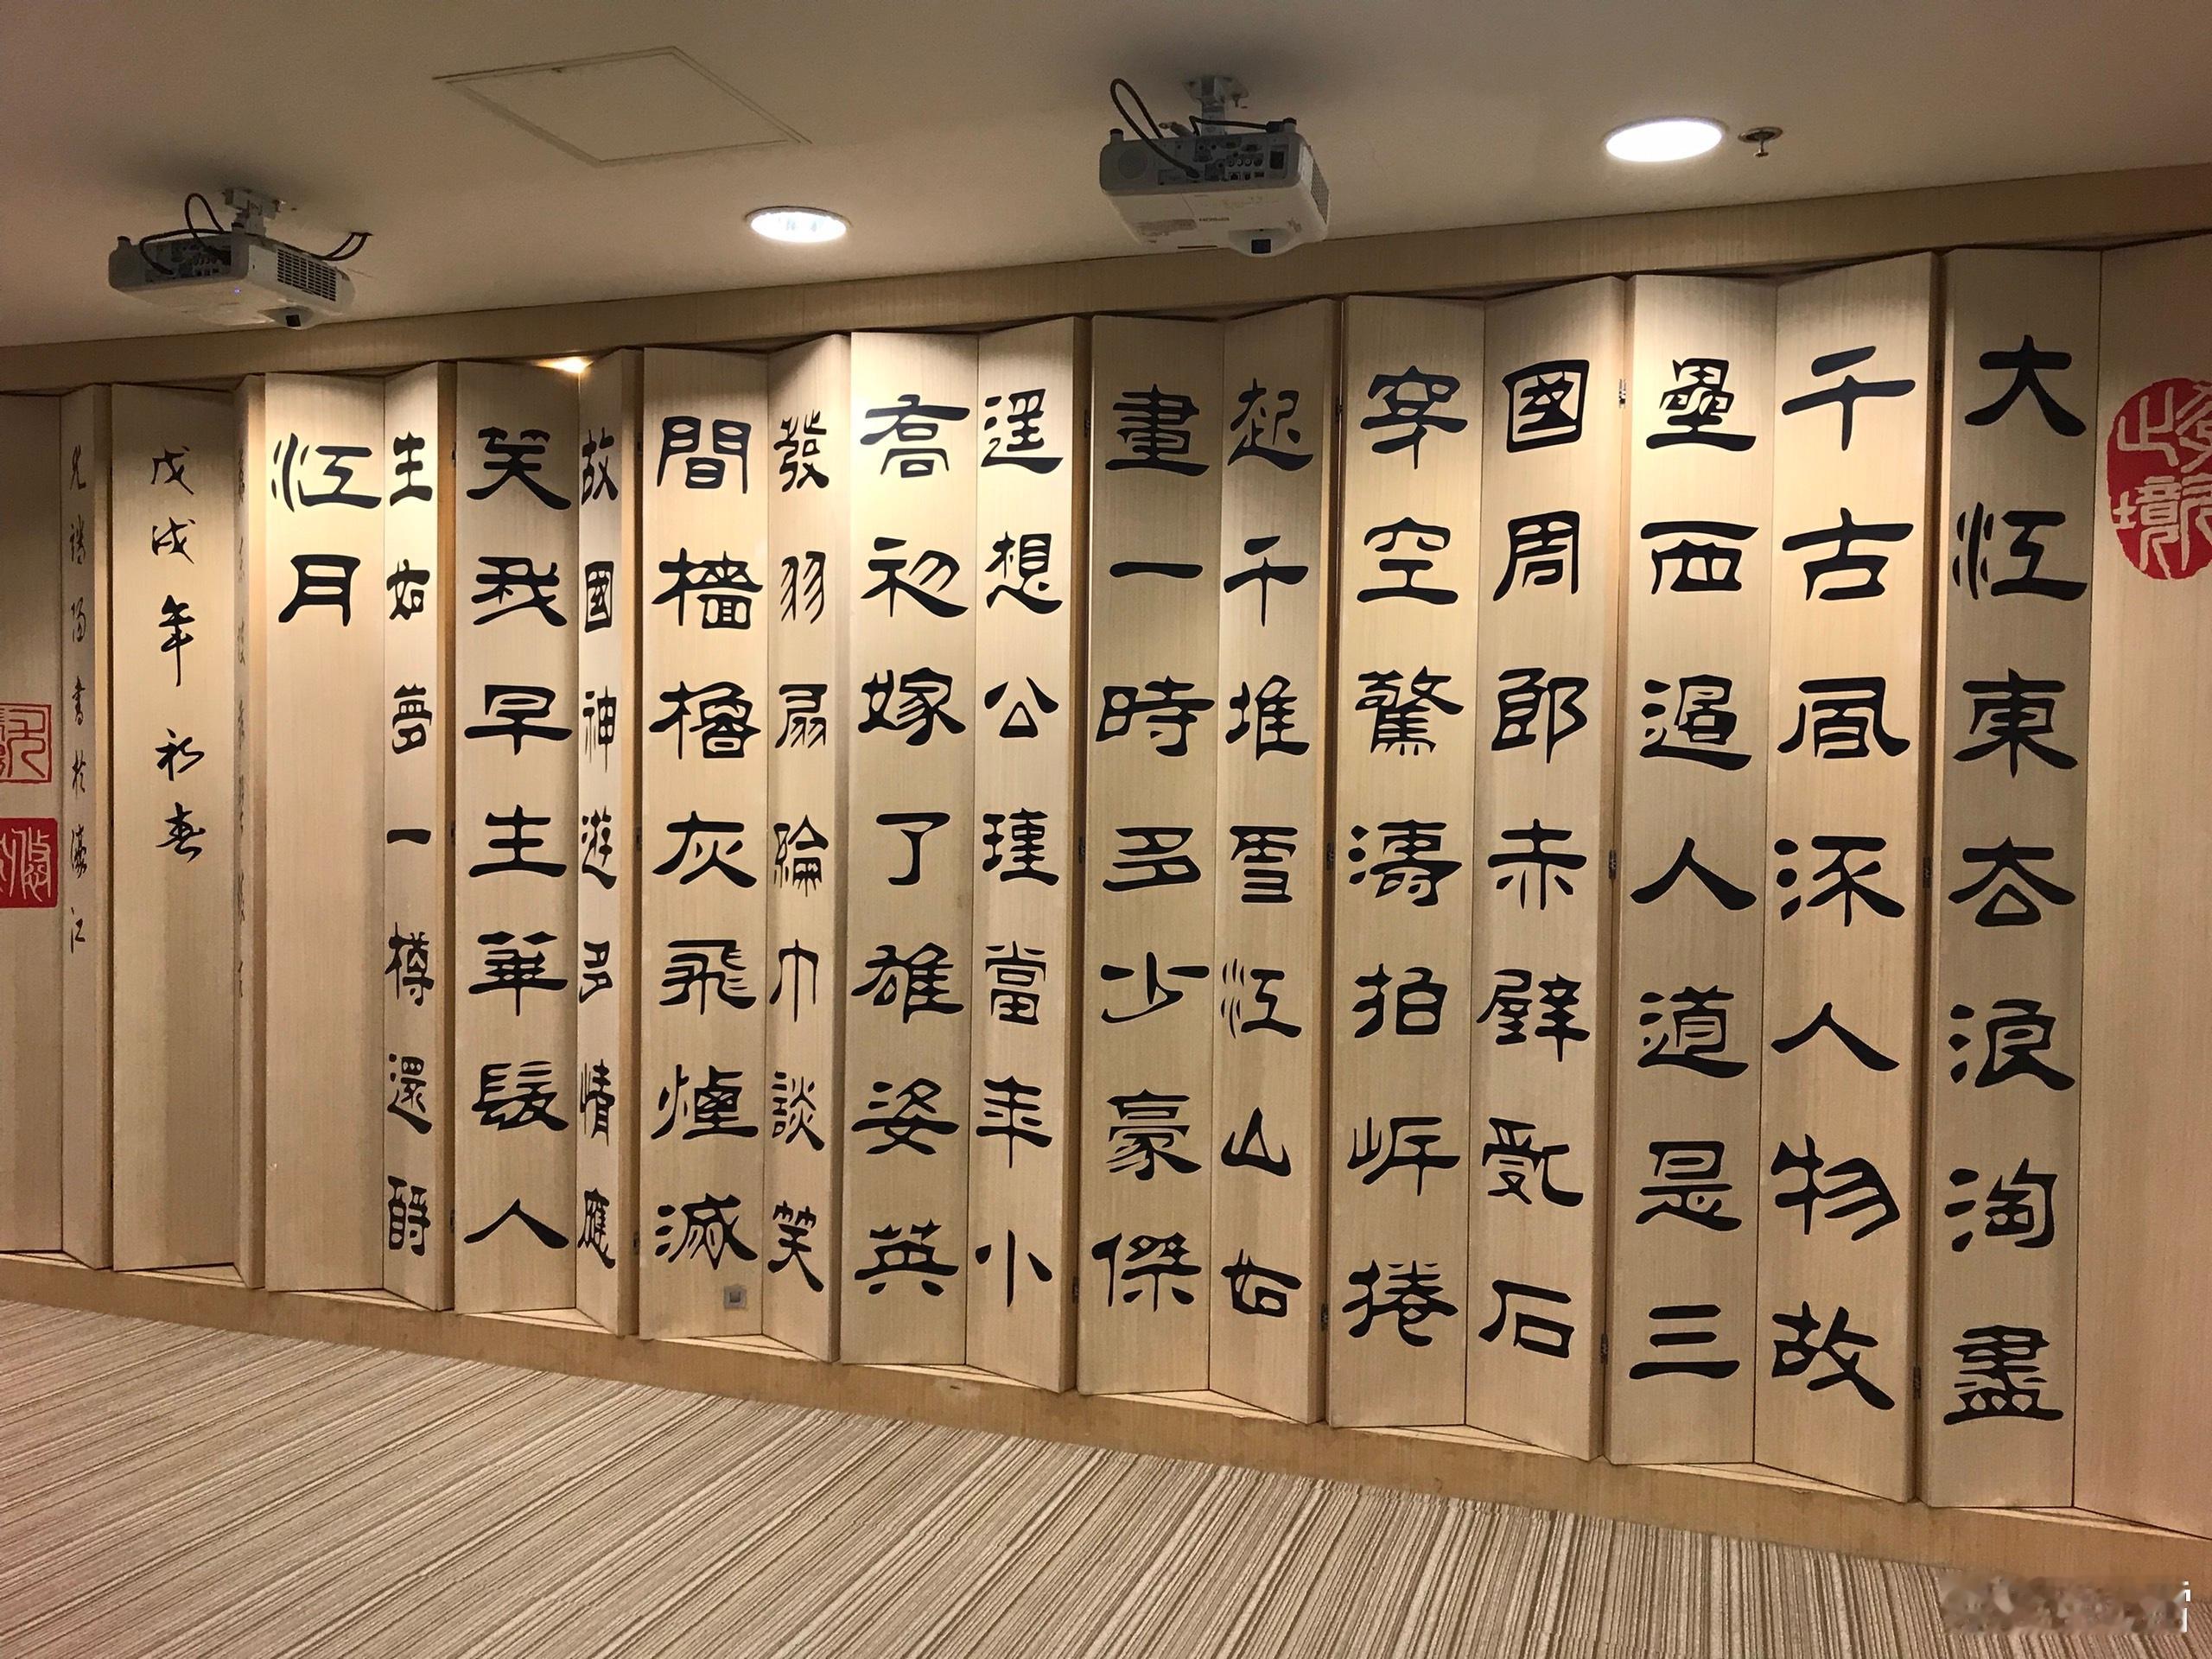 大江東去浪淘盡
千古風流人物故
壘西邊人道是三
國周郎赤壁亂石
穿空驚濤拍岸捲
起千堆雪江山如
畫一時多少豪傑
遥想公瑾當年小
喬初嫁了雄姿英
發羽扇綸巾談笑
間檣櫓灰飛煙滅
故國神遊多情應
笑我早生華髮人
生如夢一樽還酹
江月
戊戌年初春
書於濠江